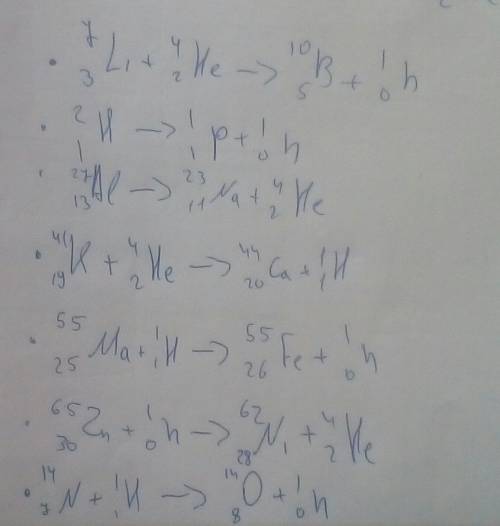 • ⁷₃Li + ⁴₂He → ¹⁰₅B + ¹₀n
• ²₁H → ¹₁p + ¹₀n
• ²⁷₁₃Al → ²³₁₁Na + ⁴₂He
• ⁴¹₁₉K + ⁴₂He → ⁴⁴₂₀Ca + ¹₁H
• ⁵⁵₂₅Ma + ¹₁H → ⁵⁵₂₆Fe + ¹₀n
• ⁶⁵₃₀Zn + ¹₀n → ⁶²₂₈Ni + ⁴₂He
• ¹⁴₇N + ¹₁H → ¹⁴₈O + ¹₀n